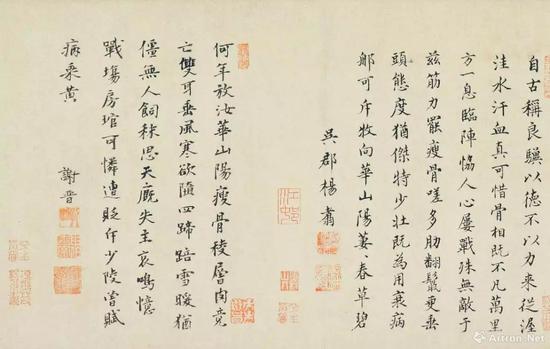 自古稱良驥以德不以力来從渥
洼水汗血真可惜骨相既不凡萬里
方一息臨陣恊人心屢戰殊無敵于
茲筋力罷瘦骨嗟多肋翻鬣更垂
頭態度猶傑特少壯既為用衰病
那可斥牧向華山陽萋〻春草碧
吳郡楊翥
何年放汝華山陽瘦骨稜層肉竟
亡雙耳垂風寒欲墮四蹄踣雪暖猶
僵無人飼秣思天厩失主哀鳴憶
戰場房琯可憐遭貶斥少陵曾賦
病乘黄 謝晋
Artron.Net